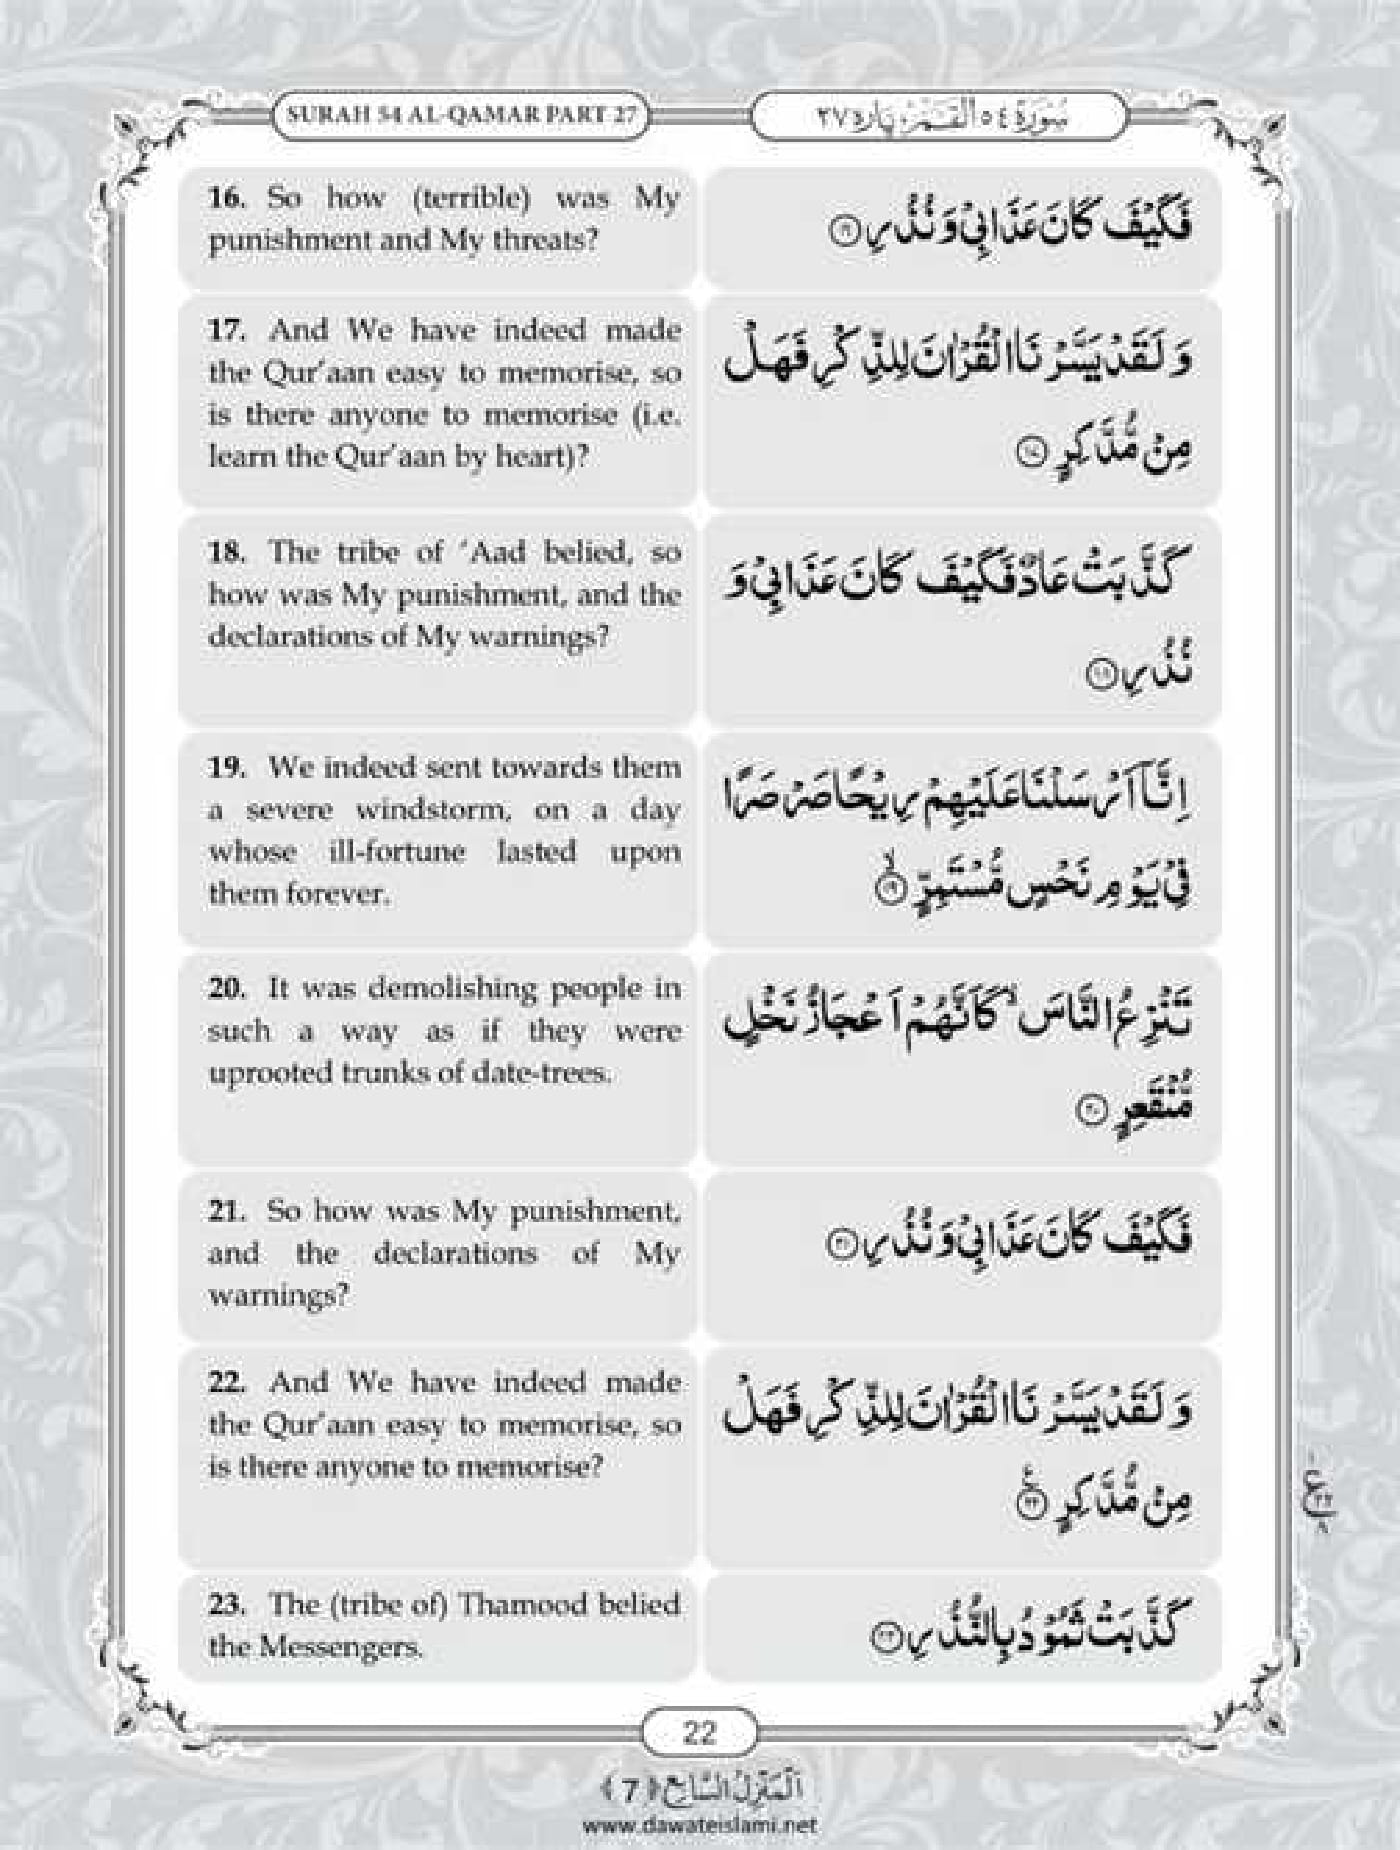 SURAH 54 AL-QAMAR PART 27
سُوْرَةُ ٥٤ اَلْقَمَرُ پارہ ٢٧
16. So how (terrible) was My
punishment and My threats?
فَكَيْفَ كَانَ عَذَابِيْ وَنُذُرِ ﴿١٦﴾
17. And We have indeed made
the Qur'aan easy to memorise, so
is there anyone to memorise (i.e.
learn the Qur'aan by heart)?
وَ لَقَدْ يَسَّرْنَا الْقُرْاٰنَ لِلذِّكْرِ فَهَلْ
مِنْ مُّدَّكِرٍ ﴿١٧﴾
18. The tribe of 'Aad belied, so
how was My punishment, and the
declarations of My warnings?
كَذَّبَتْ عَادٌ فَكَيْفَ كَانَ عَذَابِيْ وَ
نُذُرِ ﴿١٨﴾
19. We indeed sent towards them
a severe windstorm, on a day
whose ill-fortune lasted upon
them forever.
اِنَّاۤ اَرْسَلْنَا عَلَيْهِمْ رِيْحًا صَرْصَرًا
فِيْ يَوْمِ نَحْسٍ مُّسْتَمِرٍّ ﴿١٩﴾ۙ
20. It was demolishing people in
such a way as if they were
uprooted trunks of date-trees.
تَنْزِعُ النَّاسَ ۙ كَاَنَّهُمْ اَعْجَازُ نَخْلٍ
مُّنْقَعِرٍ ﴿٢٠﴾
21. So how was My punishment,
and the declarations of My
warnings?
فَكَيْفَ كَانَ عَذَابِيْ وَنُذُرِ ﴿٢١﴾
22. And We have indeed made
the Qur'aan easy to memorise, so
is there anyone to memorise?
وَ لَقَدْ يَسَّرْنَا الْقُرْاٰنَ لِلذِّكْرِ فَهَلْ
مِنْ مُّدَّكِرٍ ﴿٢٢﴾ۧ
ع
٢٢
٨
23. The (tribe of) Thamood belied
the Messengers.
كَذَّبَتْ ثَمُوْدُ بِالنُّذُرِ ﴿٢٣﴾
22
اَلْمَنْزِلُ السَّابِعُ ﴿7﴾
www.dawateislami.net